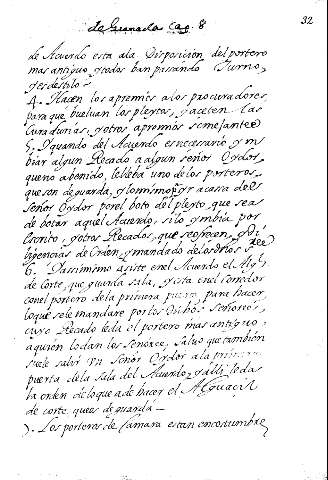 de Granada Cap. 8
32
de Acuerdo esta ala Disposicion del portero
mas antiguo, y todos ban pissando Turno,
y es destilo
4. Hacen los apremios a los procuradores
para que buelvan los pleytos, y aceten las
Curadurias, y otros apremios semejantes
5. Y quando del Acuerdo es necessario ym
biar algun Recado a algun señor Oydor,
que no a benido, le lleba uno de los porteros,
que son de guarda, y lo mismo por a cassa del
Señor Oydor por el boto del pleyto, que sea
de botar aquel Acuerdo, si lo ymbia por
Escrito, y otros Recados, que se ofrecen, y Di
ligencias de Orden, y mandado de los dhos Sres
6. Y assimismo asiste en el Acuerdo el Algl
de Corte, que guarda sala, y esta en el Corredor
con el portero de la primera puerta, para hacer
lo que se le mandare por los Dichos Señores,
cuyo Recado le da el portero mas antiguo,
a quien lo dan los Señores, salvo que tambien
suele salir un Señor Oydor a la primera
puerta de la Sala del Acuerdo, y alli le da
la orden de lo que a de hacer el Alguacil
de corte que es de guarda
7. Los porteros de Camara estan en costumbre